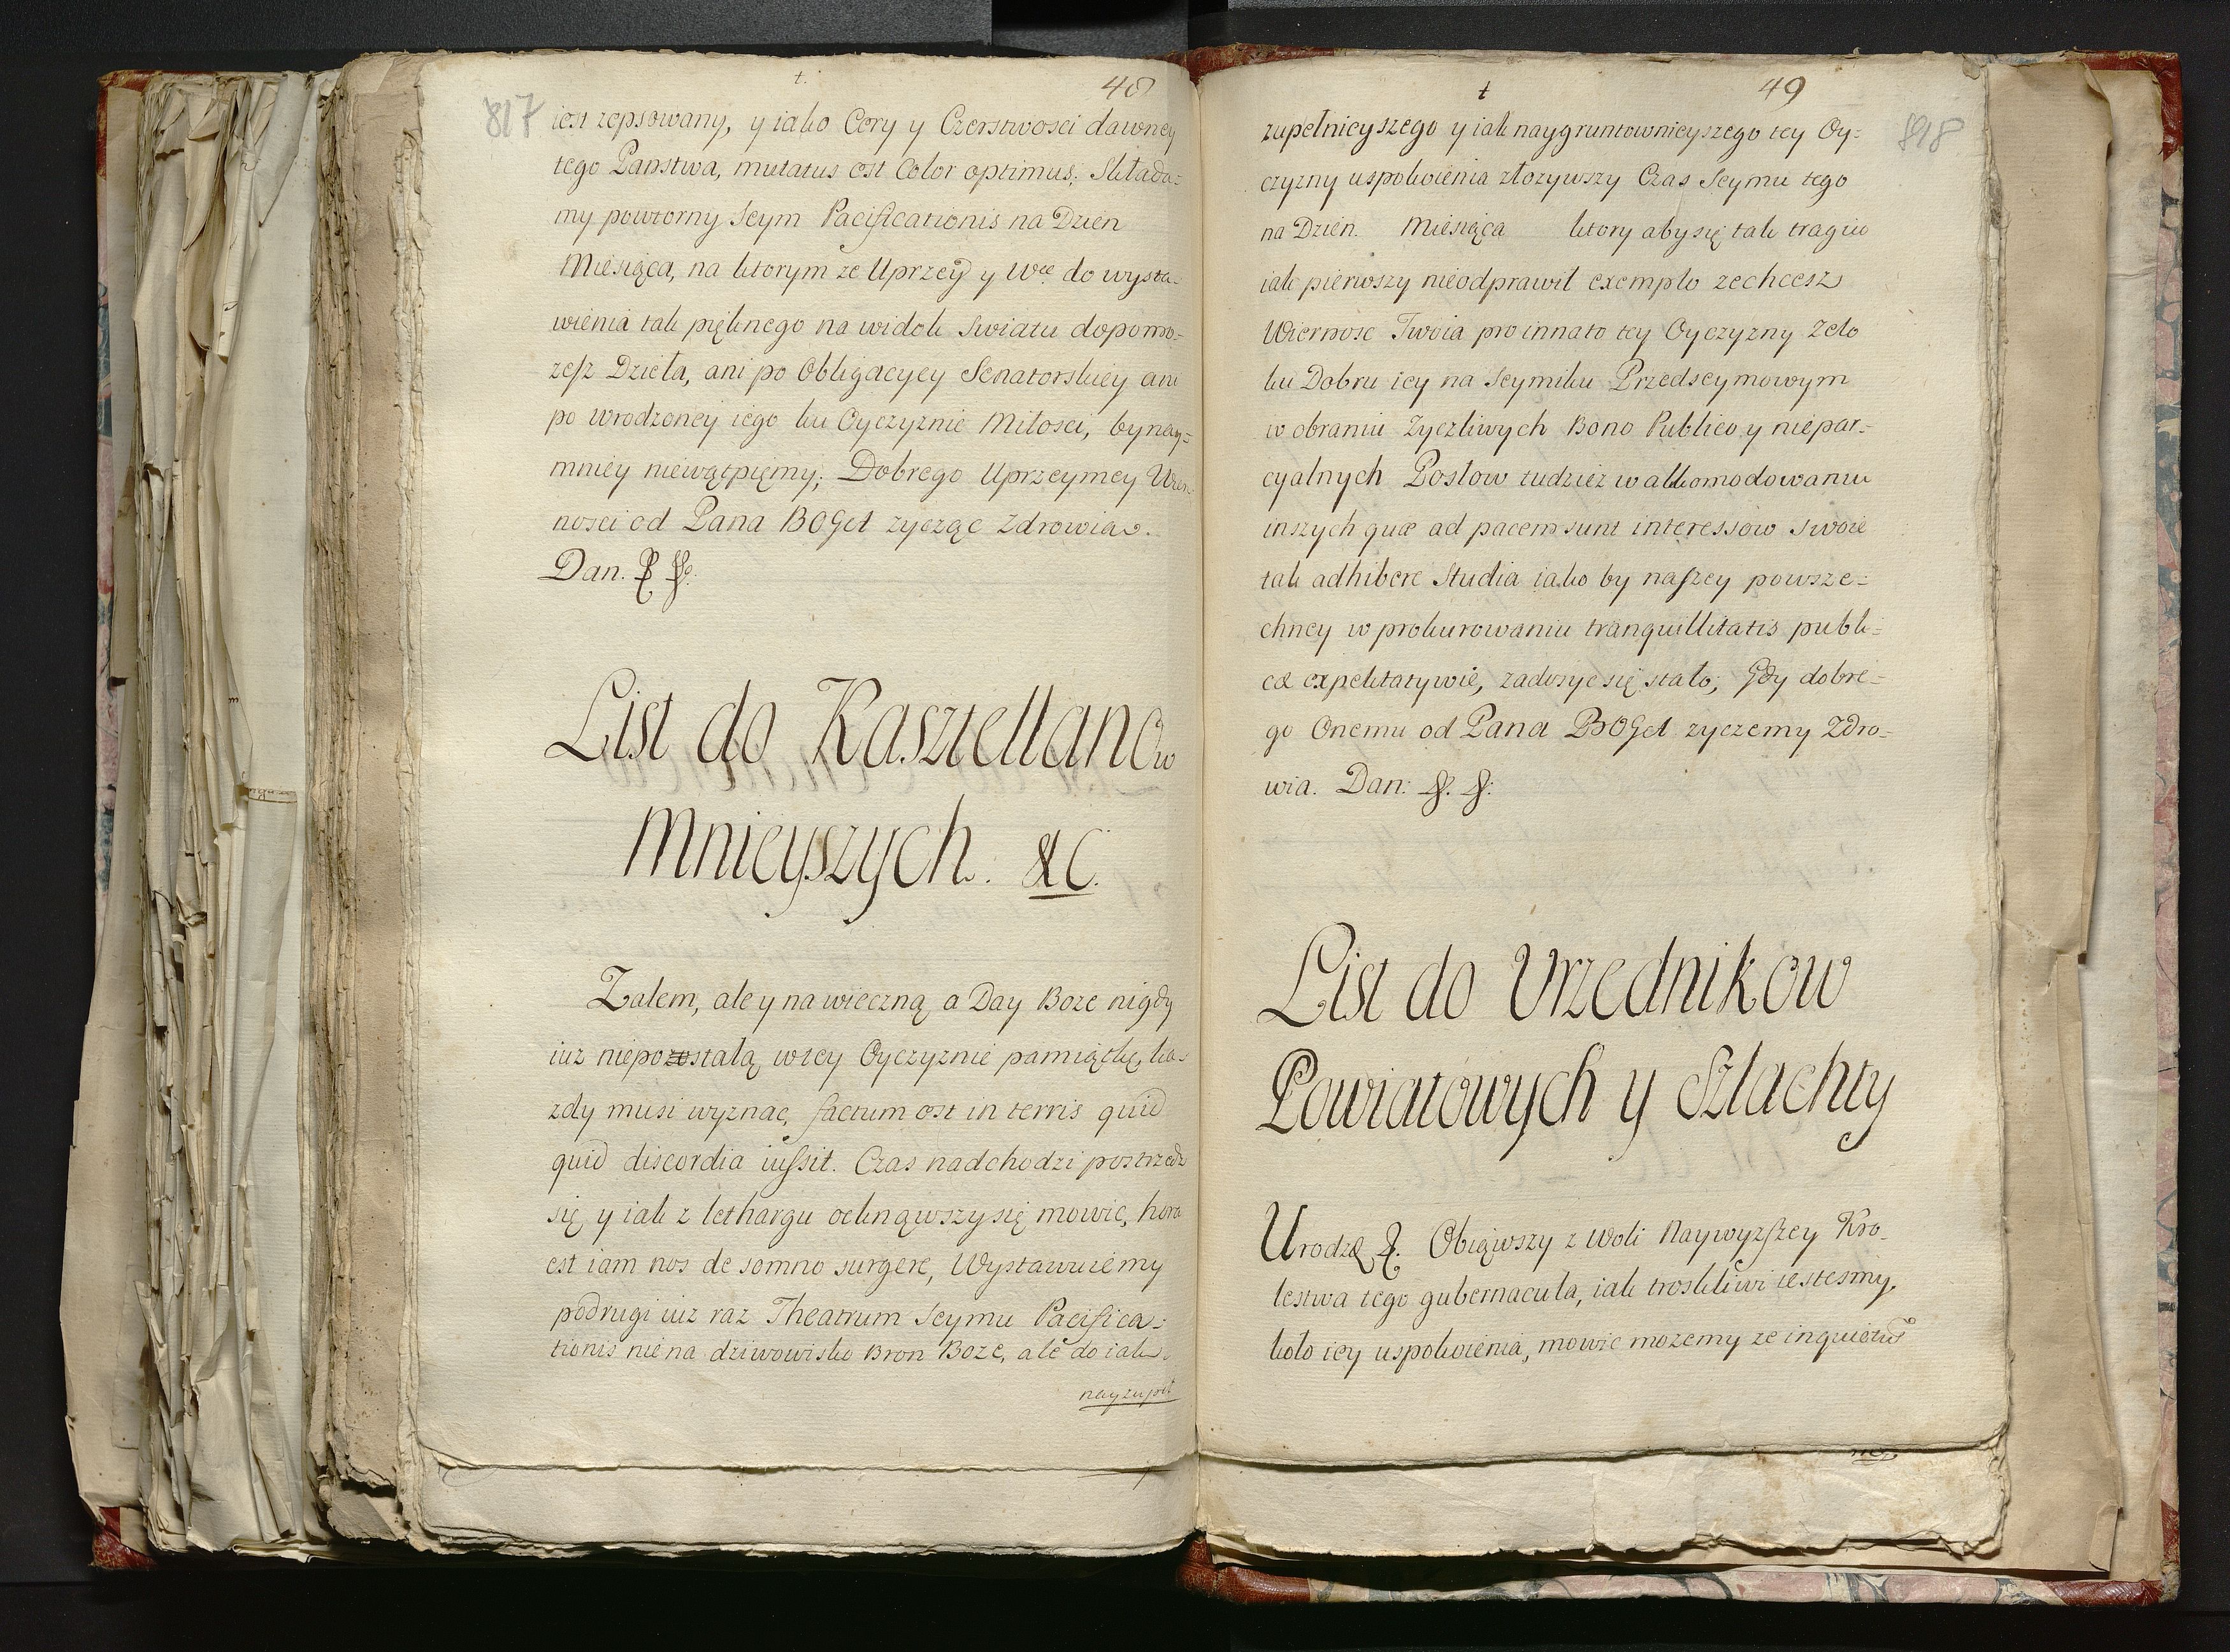 817
t.
48
iest zepsowany, y iako Cery y Czerstwosci dawney
tego Panstwa, mutatus est Color optimus; Składa-
my powtorny Seym Pacificationis na Dzien
Miesiąca, na ktorym ze Uprzey y Wcė do wysta-
wienia tak pięknego na widok swiatu dopomo-
zesz Dzieła, ani po Obligacyey Senatorskiey ani
po wrodzoney iego ku Oyczyznie Miłosci, bynay-
mniey niewątpięmy; Dobrego Uprzeymey Wier-
nosci od Pana BOGA zycząc Zdrowia.
Dan.
List do Kasztellanow
Mnieyszych. &C.
Zalem, ale y na wieczną a Day Boze nigdy
iuz niepozostałą w tey Oyczyznie pamiątkę, ka-
zdy musi wyznac, factum est in terris quid
quid discordia iussit. Czas nadchodzi postrzedz
się y iak z lethargu ocknąwszy się mowic, hora
est iam nos de somno surgere, Wystawuiemy
podrugi iuz raz Theatrum Seymu Pacifica-
tionis nie na dziwowisko Bron Boze, ale do iak
nayzupeł
t
49
818
zupełnieyszego y iak naygruntownieyszego tey Oy-
czyzny uspokoienia złozywszy Czas Seymu tego
na Dzien. Miesiąca ktory aby się tak tragico
iak pierwszy nieodprawił exemplo zechcesz
Wiernosc Twoia pro innato tey Oyczyzny Zelo
ku Dobru iey na Seymiku Przedseymowym
w obraniu Zyczliwych Bono Publico y niepar-
cyalnych Posłow tudziez w akkomodowaniu
inszych quæ ad pacem sunt interessow swoie
tak adhibere Studia iako by naszey powsze-
chney w prokurowaniu tranquillitatis publi-
cæ expektatywie, zadosyc się stało; Gdy dobre-
go Onemu od Pana BOGA zyczemy Zdro-
wia. Dan:
List do Vrzednikow
Powiatowych y Szlachty
Urodz Obiąwszy z Woli Naywyzszey Kro-
lestwa tego gubernacula, iak troskliwi iestesmy,
koło iey uspokoienia, mowic mozemy ze inquietu